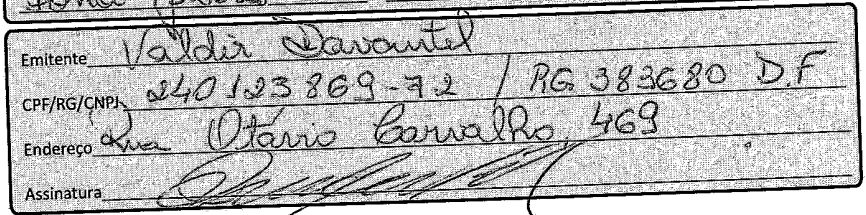 Emitente Valdir Davantel
CPF/RG/CNPJ 240123869-72 / RG 383680 D.F
Endereço Rua Otávio Carvalho, 469
Assinatura